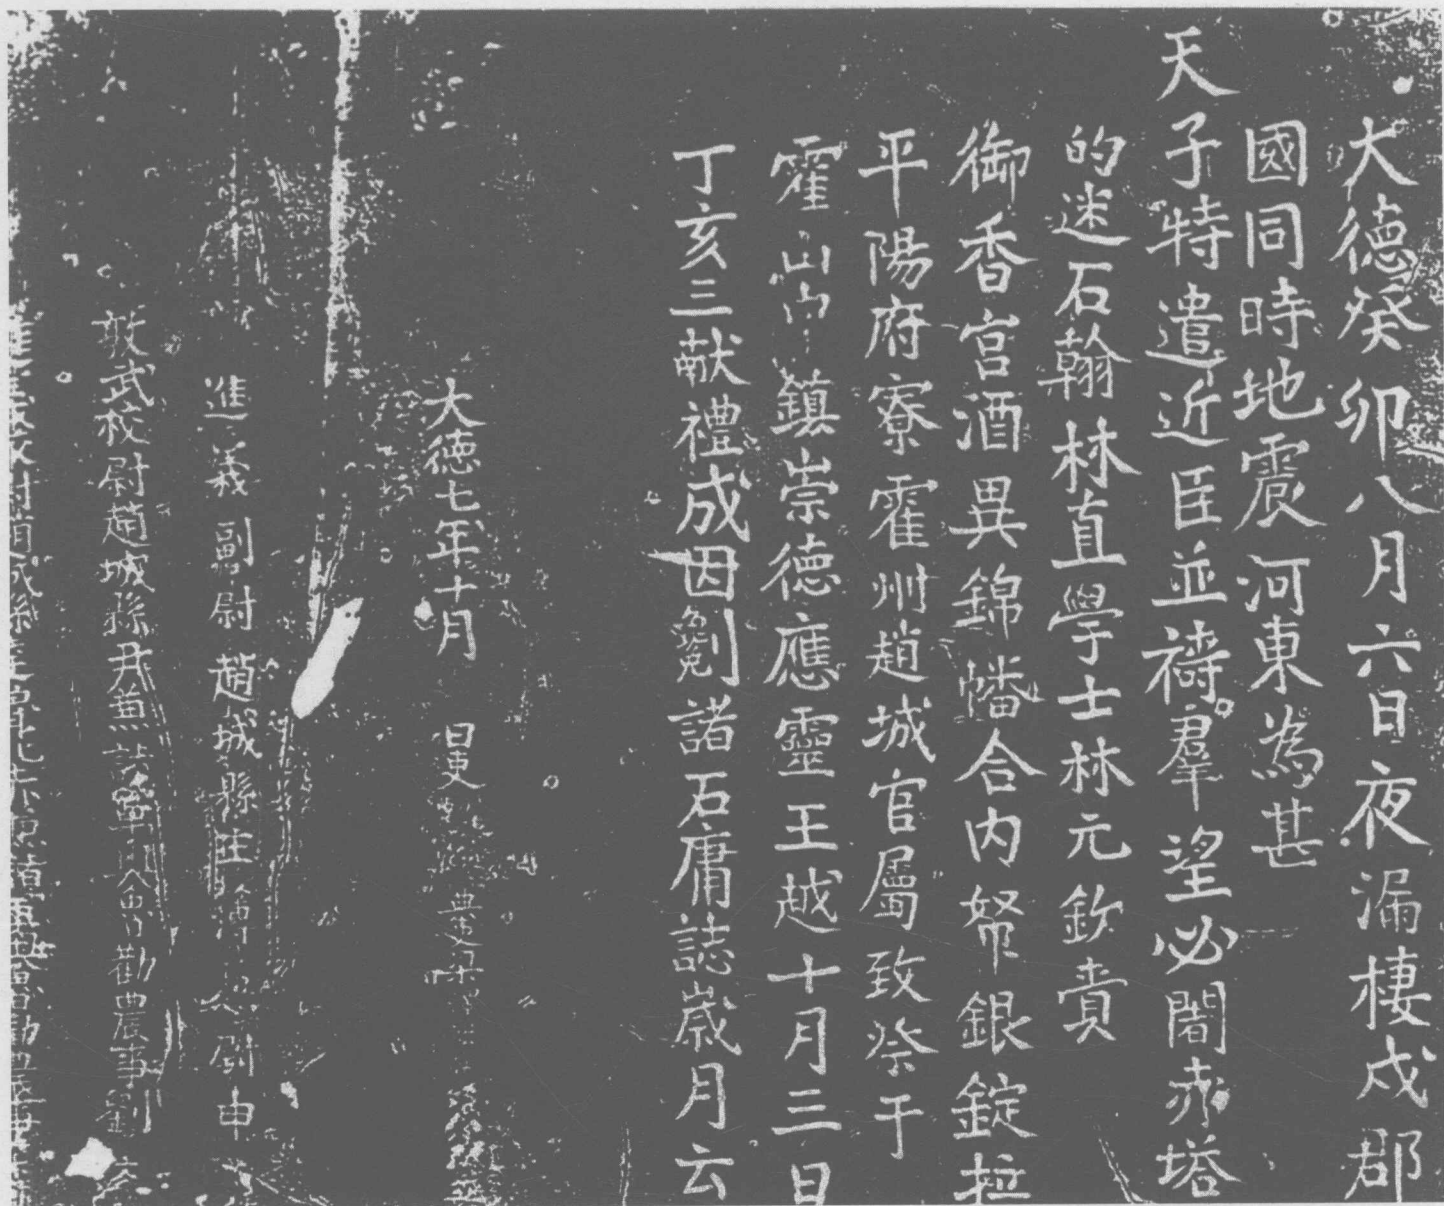 大德癸卯八月六日夜漏棲戍郡
國同時地震河東為甚
天子特遣近臣並禱羣望必闍赤塔
的迷石翰林直學士林元欽賫
御香宮酒異錦幡合內帑銀錠拉
平陽府寮霍州趙城官屬致祭于
霍山中鎮崇德應靈王越十月三日
丁亥三献禮成因劖諸石庸誌嵗月云
大德七年十月 日吏
進義副尉趙城縣主簿尉申
敦武校尉趙城縣尹兼諸軍奧魯勸農事劉
進義校尉趙城縣達魯花赤